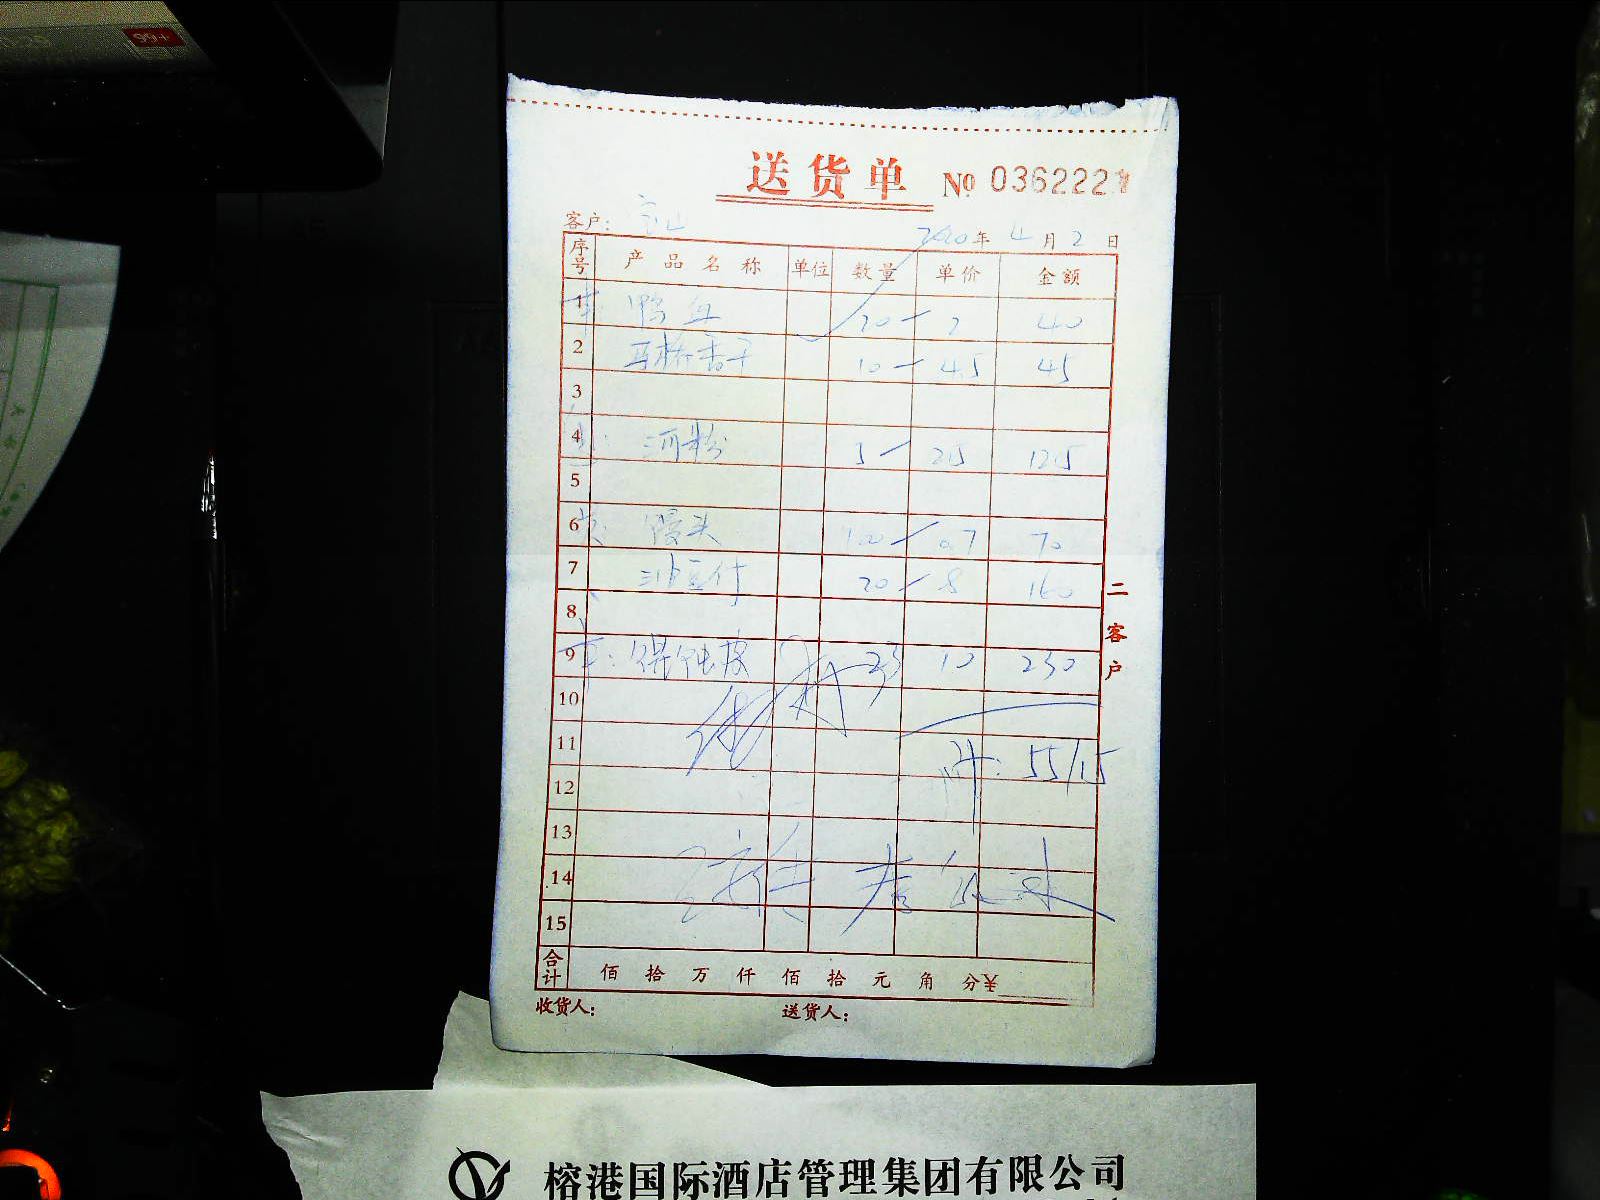 99+
送货单 № 0362221
客户: 宝山 2020年 4月 2日
序号 产品名称 单位 数量 单价 金额
1 鸭血 20 2 40
2 马桥香干 10 4.5 45
3
4 河粉 5 2.5 12.5
5
6 馒头 100 0.7 70
7 油豆付 20 8 160
8
9 馄饨皮 23 10 230
10
11 计: 557.5
12
13
14
15
合计 佰 拾 万 仟 佰 拾 元 角 分 ¥
收货人: 送货人:
二客户
榕港国际酒店管理集团有限公司